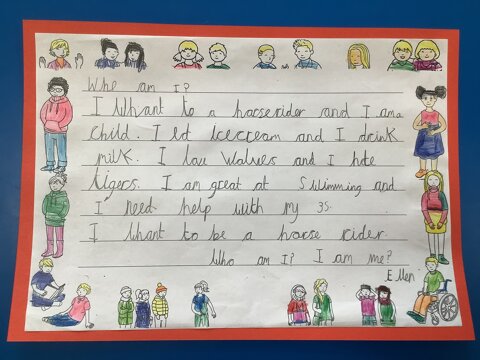 Who am I?
I Whant to a horserider and I am a
child. I Et Icecream and I drink
milk. I lov Wolves and I hate
tigers. I am great at Swimming and
I need help with my 3s.
I Whant to be a horse rider.
Who am I? I am me?
Ellen